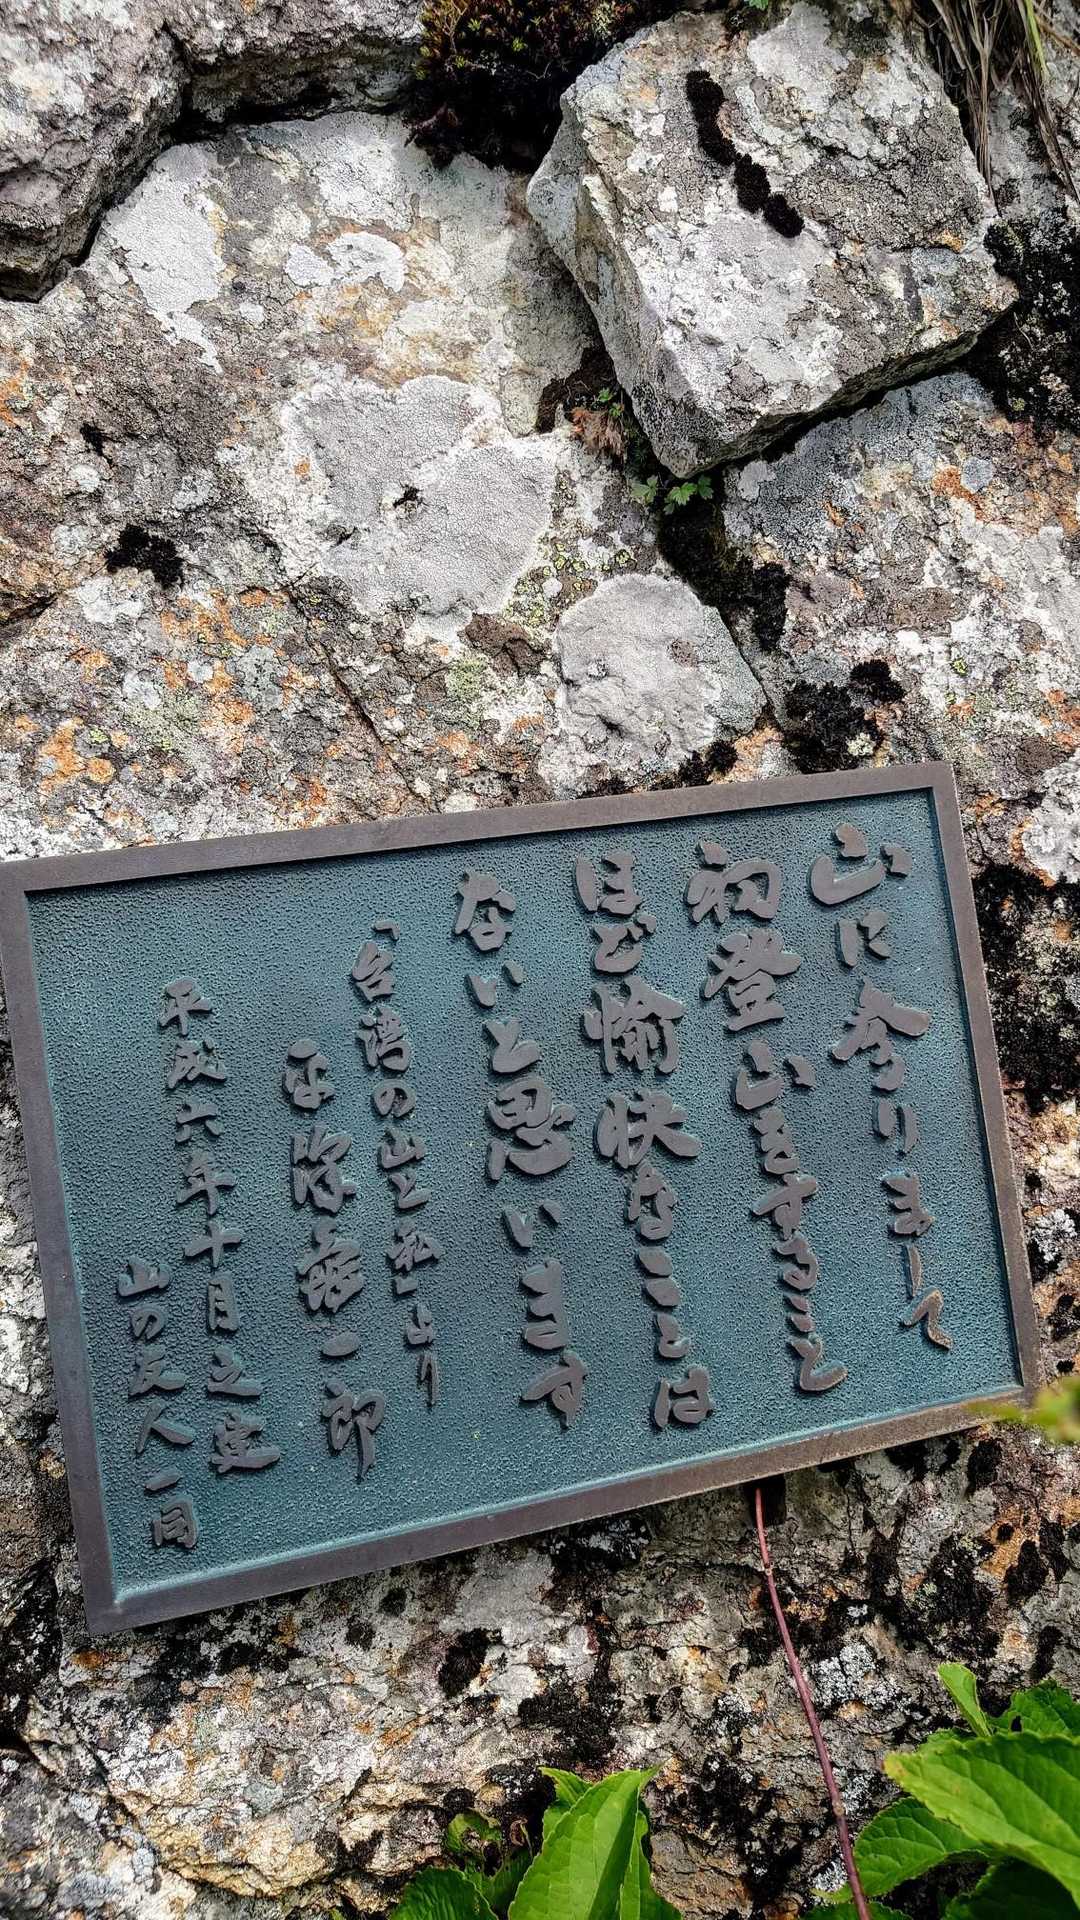 山に参りまして
初登山をすること
ほど愉快なことは
ないと思います
「台湾の山と私」より
平澤亀一郎
平成六年十月之建
山の友人一同